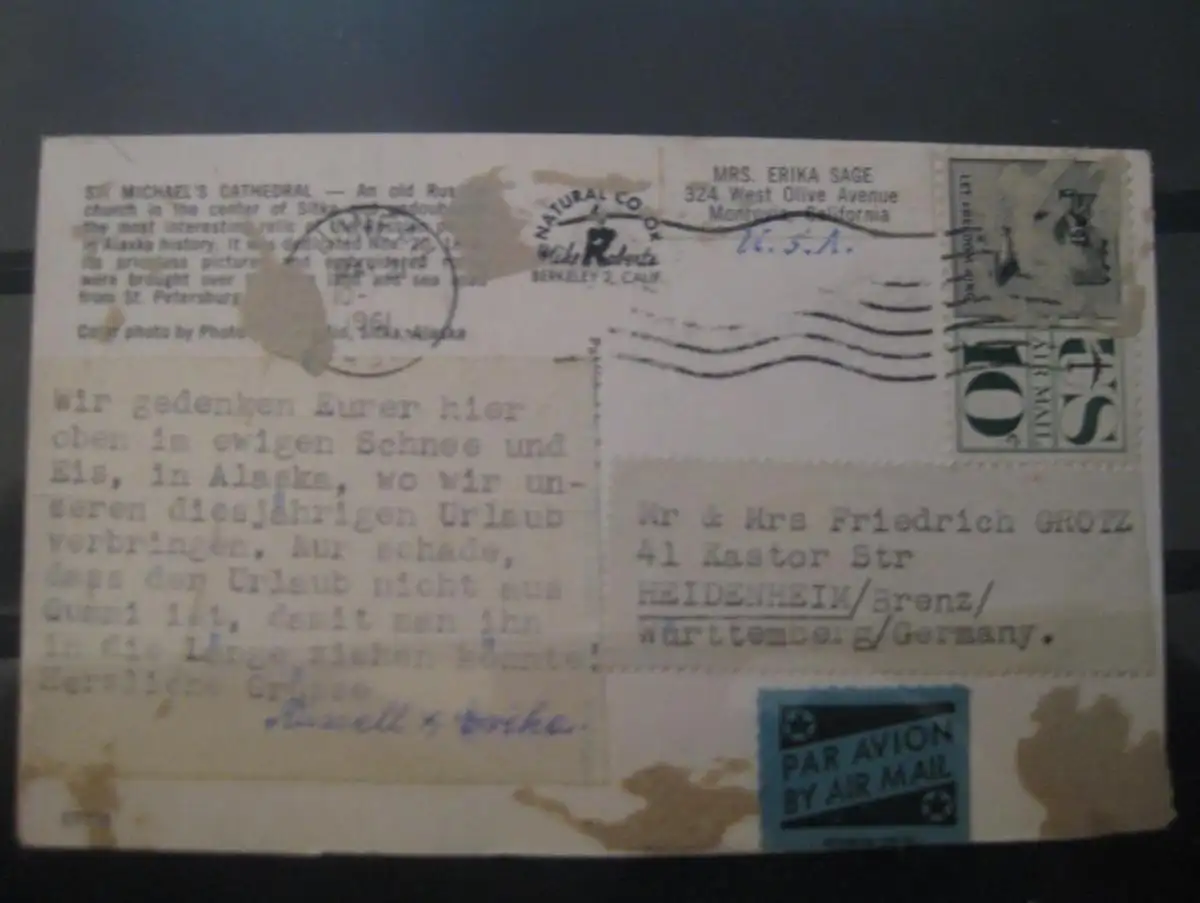 ST. MICHAEL'S CATHEDRAL — An old
church in the center of
the most interesting
in Alaska history. It was dedicated Nov.
were brought over land and sea
from St. Petersburg
Color photo by Sitka, Alaska
NATURAL COLOR
Mike Roberts
BERKELEY 2, CALIF.
MRS. ERIKA SAGE
324 West Olive Avenue
California
U.S.A.
1961
LET FREEDOM RING
10c
AIR MAIL
US
Wir gedenken Eurer hier
oben im ewigen Schnee und
Eis, in Alaska, wo wir un-
seren diesjährigen Urlaub
verbringen. Nur schade,
dass der Urlaub nicht aus
Gummi ist, damit man ihn
in die Länge ziehen könnte!
Herzliche Grüsse
Russell & Erika.
Mr & Mrs Friedrich GROTZ
41 Kastor Str
HEIDENHEIM/Brenz/
Württemberg/Germany.
PAR AVION
BY AIR MAIL